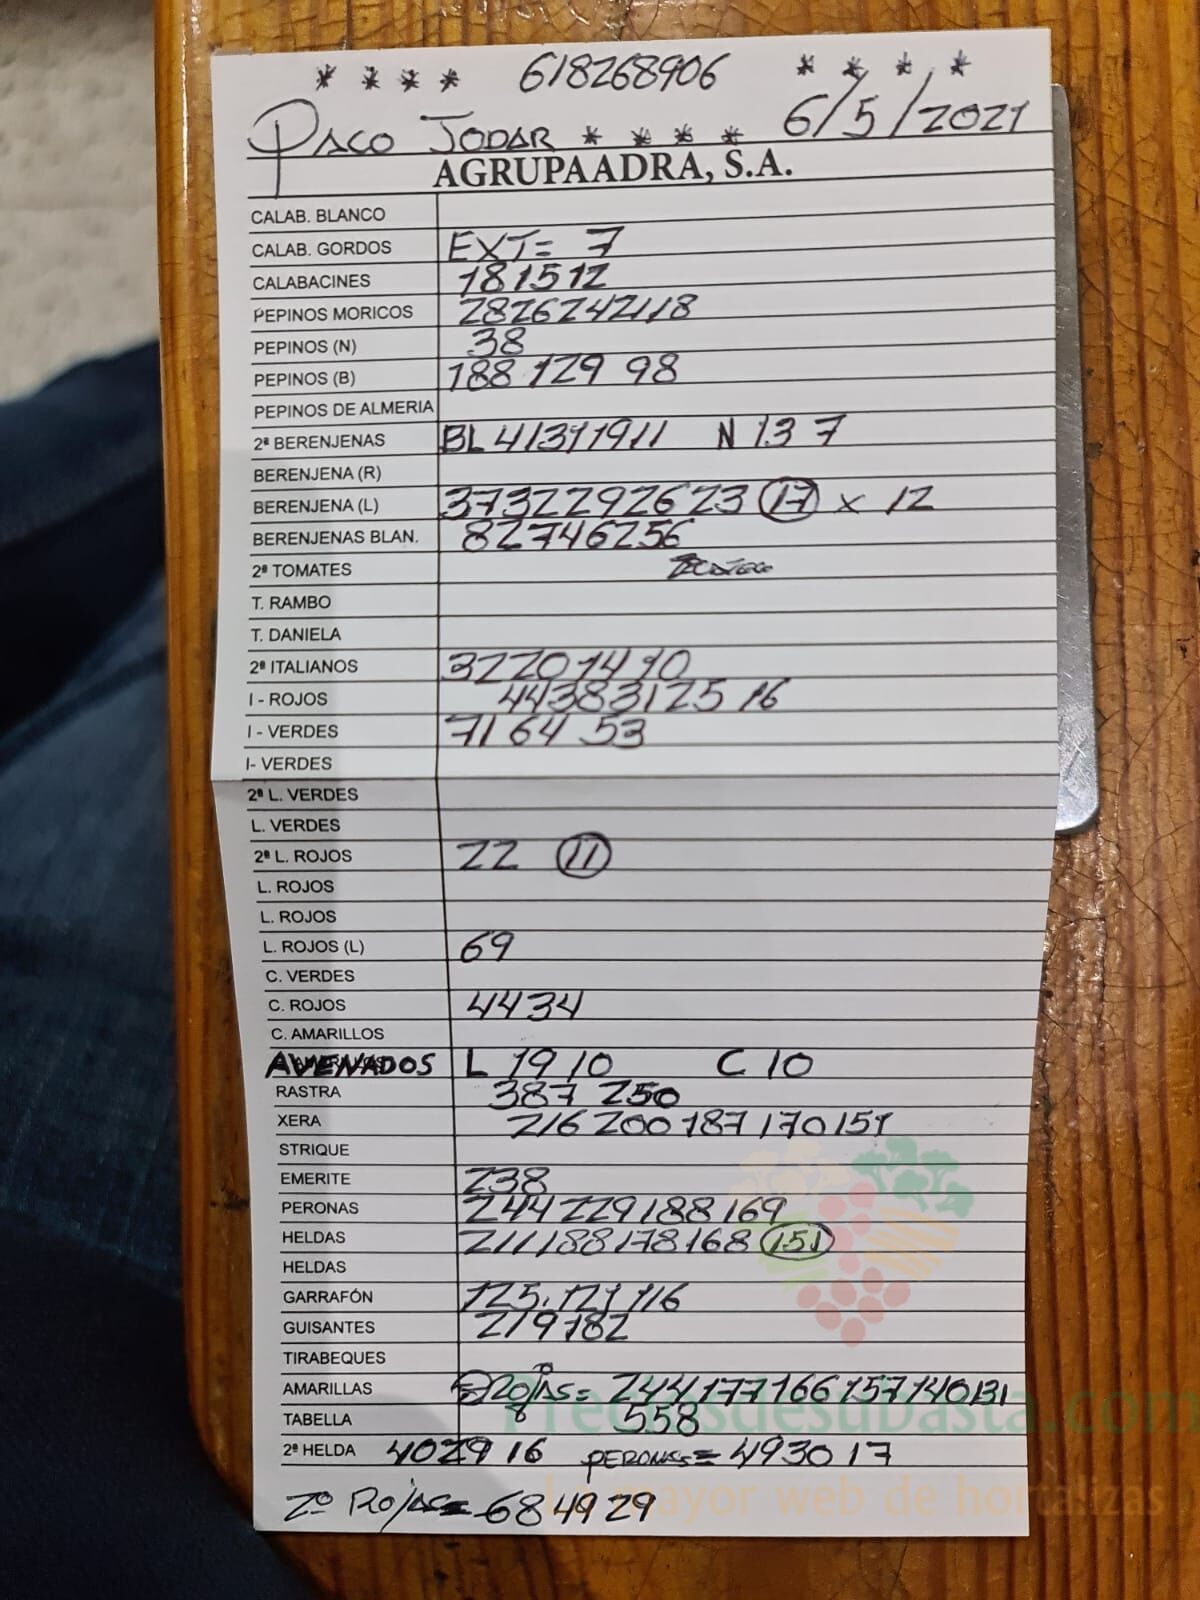 * * * * 618268906 * * * *
PACO JODAR * * * * 6/5/2021
AGRUPAADRA, S.A.
CALAB. BLANCO
CALAB. GORDOS EXT= 7
CALABACINES 181512
PEPINOS MORICOS 2826242118
PEPINOS (N) 38
PEPINOS (B) 188 129 98
PEPINOS DE ALMERIA
2ª BERENJENAS BL 41311911 N 13 7
BERENJENA (R)
BERENJENA (L) 3732292623 17 x 12
BERENJENAS BLAN. 82746256
2ª TOMATES
T. RAMBO
T. DANIELA
2ª ITALIANOS 32201410
I - ROJOS 4438312516
I - VERDES 71 64 53
I- VERDES
2ª L. VERDES
L. VERDES
2ª L. ROJOS 22 11
L. ROJOS
L. ROJOS
L. ROJOS (L) 69
C. VERDES
C. ROJOS 4434
C. AMARILLOS
AVENADOS L 19 10 C 10
RASTRA 387 250
XERA 216 200 187 170 151
STRIQUE
EMERITE 238
PERONAS 244 229 188 169
HELDAS 211 188 178 168 151
HELDAS
GARRAFÓN 125. 121 116
GUISANTES 219182
TIRABEQUES
AMARILLAS ROJAS= 244 177 166 157 140 131
TABELLA 8 558
2ª HELDA 402916 PERONAS= 493017
2º ROJAS= 684929
Preciosdesubasta.com
La mayor web de hortalizas